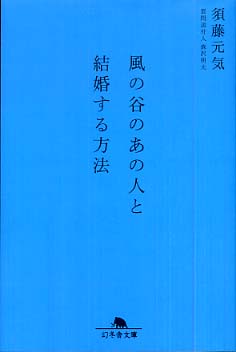 須藤元気
森沢明夫
風の谷のあの人と
結婚する方法
幻冬舎文庫